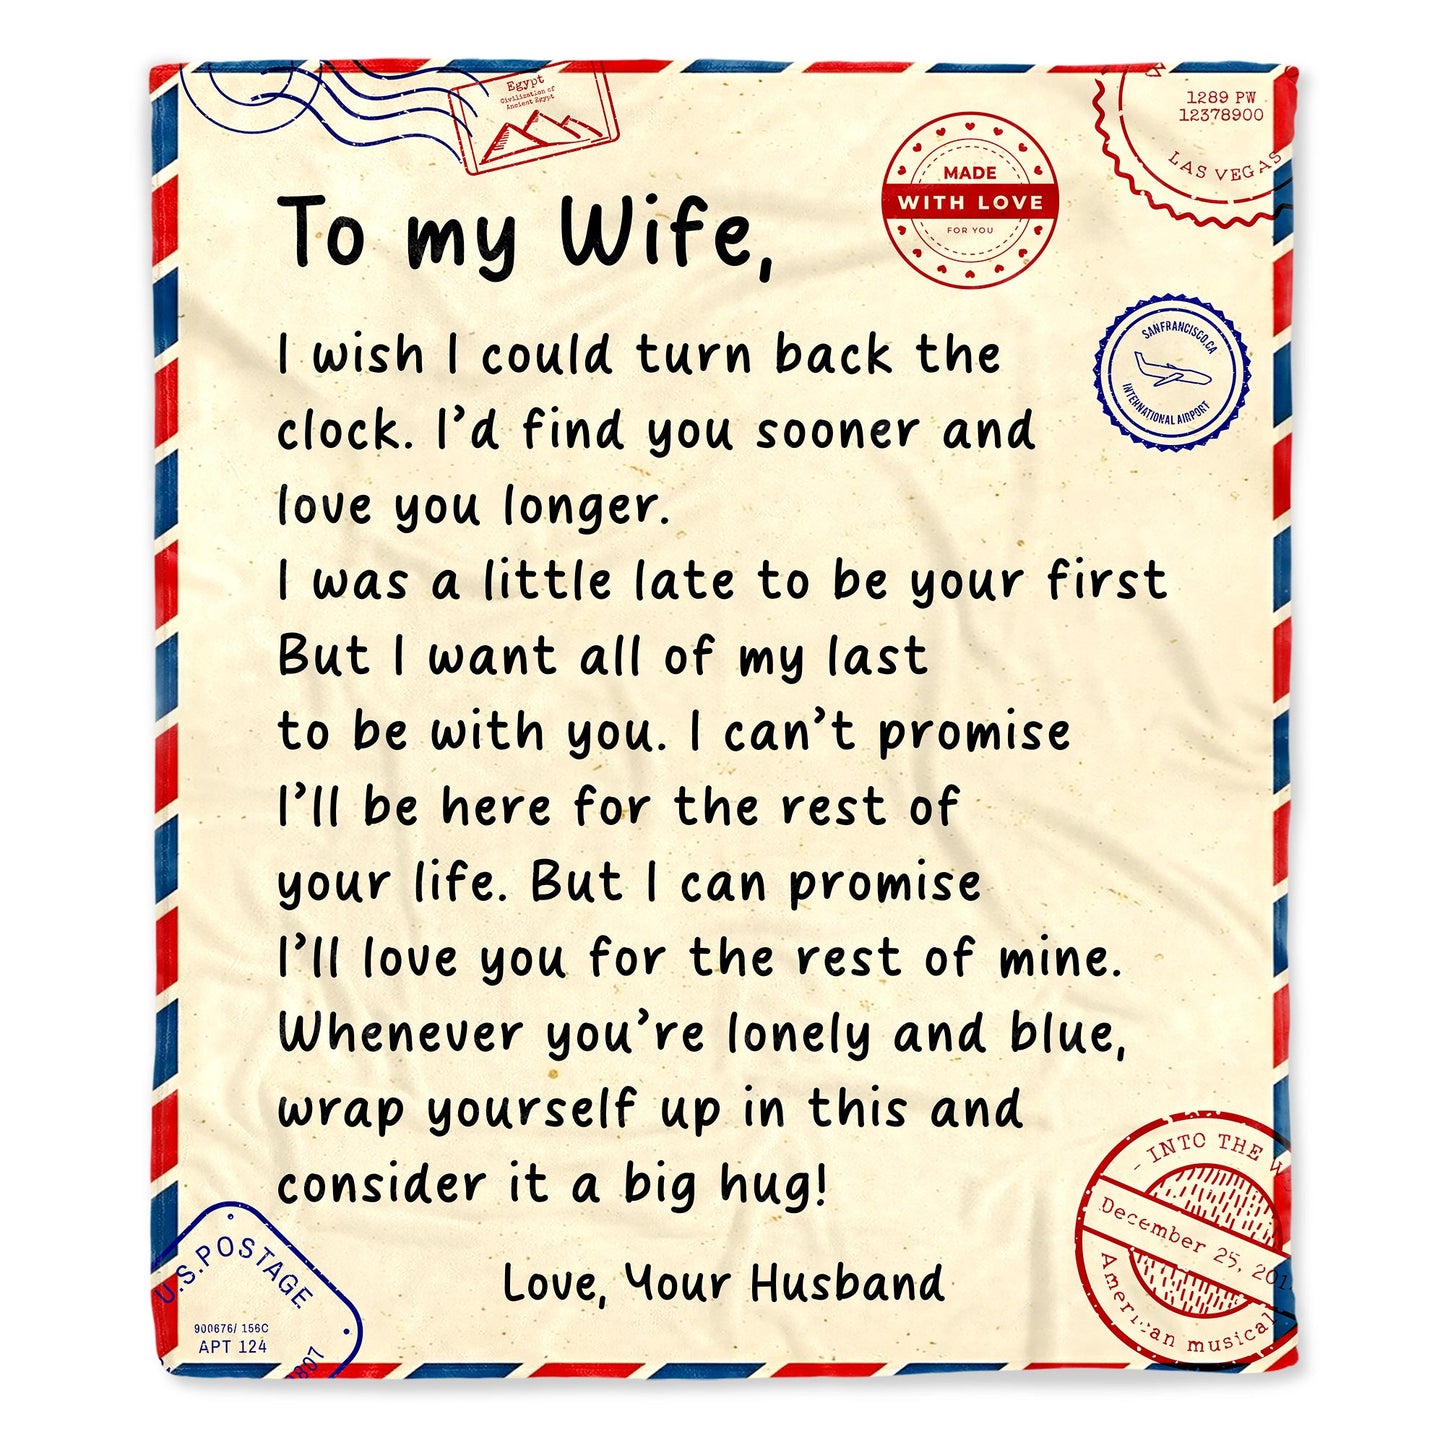 Egypt
Civilization of
Ancient Egypt
1289 PW
12378900
LAS VEGAS
MADE
WITH LOVE
FOR YOU
To my Wife,
SANFRANCISCO.CA
INTERNATIONAL AIRPORT
I wish I could turn back the
clock. I’d find you sooner and
love you longer.
I was a little late to be your first
But I want all of my last
to be with you. I can’t promise
I’ll be here for the rest of
your life. But I can promise
I’ll love you for the rest of mine.
Whenever you’re lonely and blue,
wrap yourself up in this and
consider it a big hug!
Love, Your Husband
- INTO THE
December 25, 201
American musical
U.S.POSTAGE
900676/ 156C
APT 124